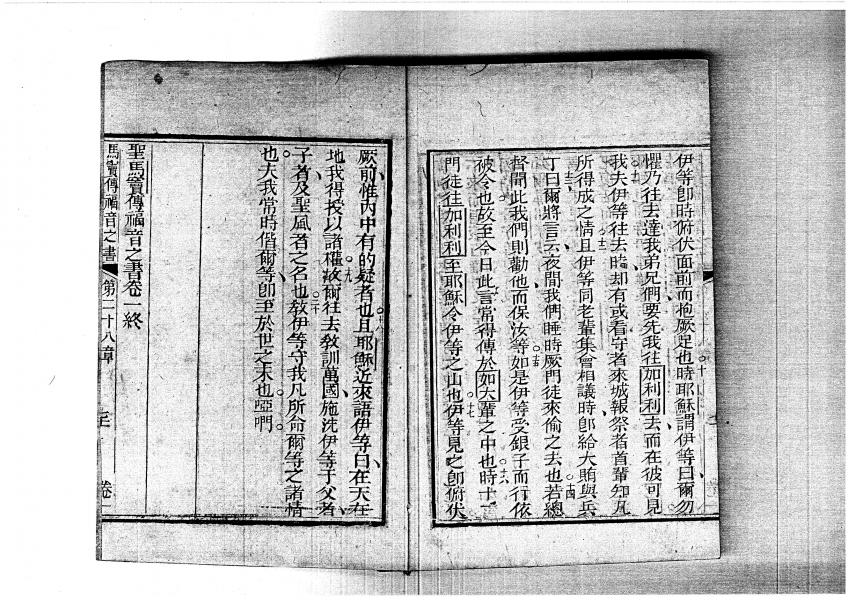 伊等卽時俯伏面前而抱厥足也時耶穌謂伊等曰爾勿
十
懼乃往去達我弟兄們要先我往加利利去而在彼可見
我夫伊等往去時却有或看守者來城報祭者首輩知凡
十一
所得成之情且伊等同老輩集會相議時卽給大賄與兵
十二
丁曰爾將言云夜間我們睡時厥門徒來偷之去也若總
十三
十四
督聞此我們則勸他而保汝等如是伊等受銀子而行依
十五
彼令也故至今日此言常得傳於如大輩之中也時十一
十六
門徒往加利利至耶穌令伊等之山也伊等見之卽俯伏
十七
厥前惟內中有的疑者也且耶穌近來語伊等曰在天在
十八
地我得授以諸權故爾往去敎訓萬國施洗伊等于父者
十九
子者及聖風者之名也敎伊等守我凡所命爾等之諸情
二十
也夫我常時偕爾等卽至於世之末也啞㖿
聖馬竇傳福音之書卷一終
馬竇傳福音之書
第二十八章
卷一